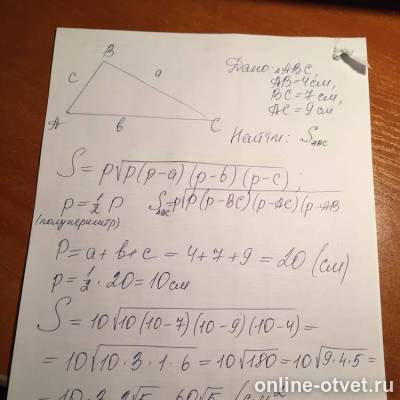 B
c a
A b C
Дано: △ABC,
AB=4см,
BC=7см,
AC=9см
Найти: S_ABC
S = p√p(p-a)(p-b)(p-c);
p=½P S_ABC=p√p(p-BC)(p-AC)(p-AB
(полупериметр)
P=a+b+c=4+7+9=20 (см)
p=½·20=10см
S=10√10(10-7)(10-9)(10-4)=
=10√10·3·1·6=10√180=10√9·4·5=
=10·3·2√5=60√5 (см²
online-otvet.ru